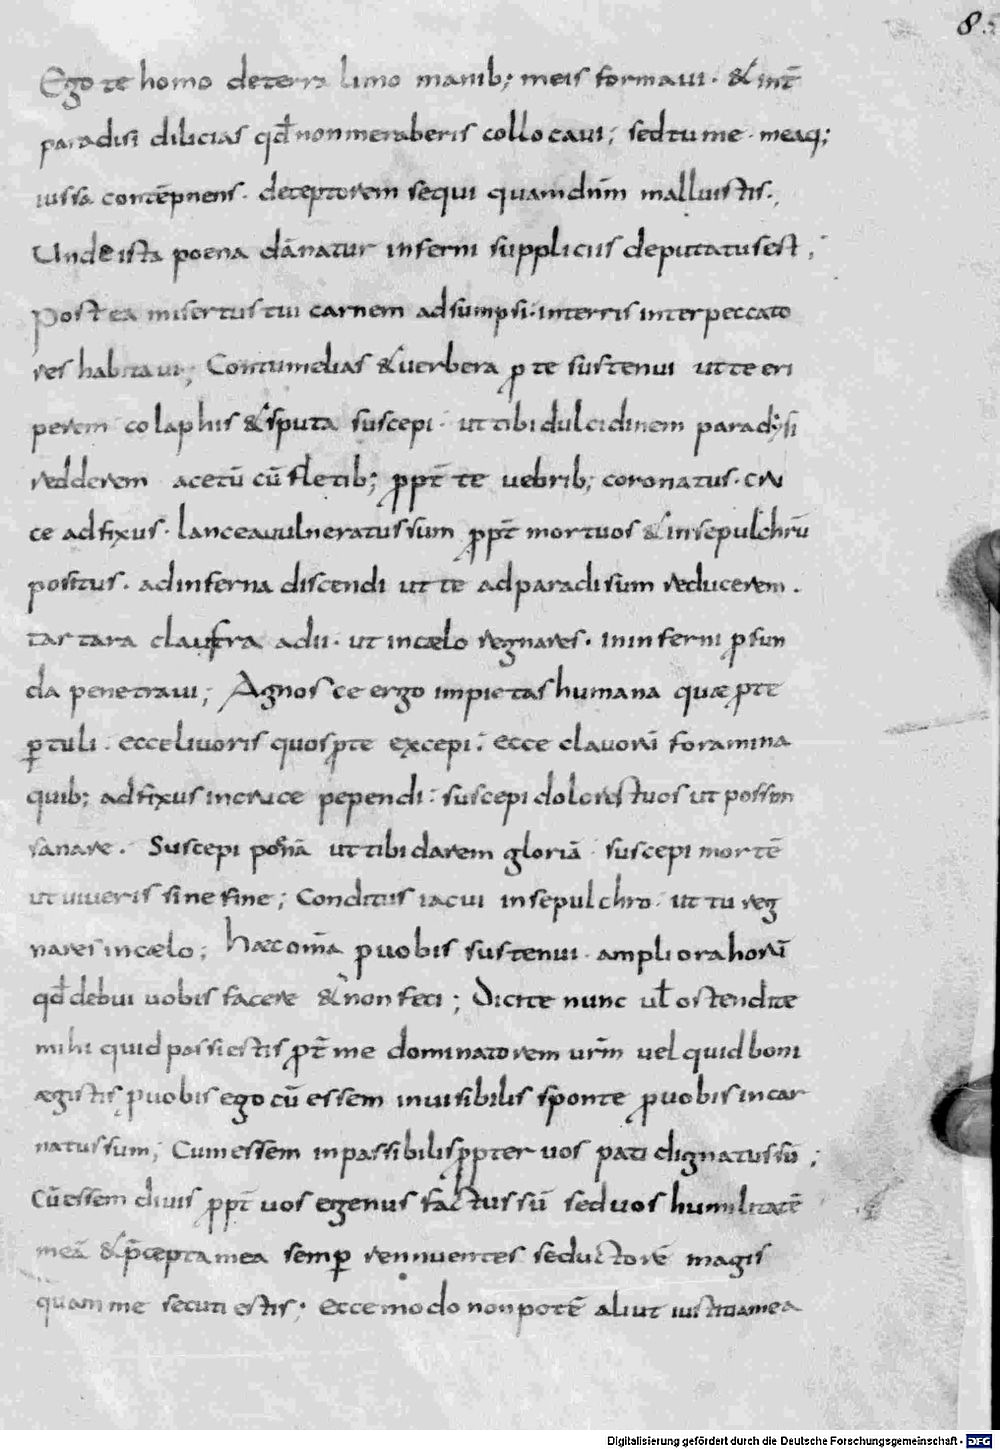 85
Ego te homo deterra limo manib; meis formaui · & int̄
paradisi dilicias qđ non meraberis collocaui; sed tu me · meaq;
iussa contēpnens · deceptorem sequi quam dn̄m malluistis ·,
Unde ista poena dānatur inferni suppliciis deputatus est ;
Postea misertus tui carnem adsumpsi · in terris inter peccato
res habitaui; Contumelias & uerbera ꝓ te sustenui ut te eri
perem colaphis & sputa suscepi · ut tibi dulcidinem paradysi
redderem acetū cū fletib; ꝓpt̄ te uebrib; coronatus · cru
ce adfixus · lancea uulneratus sum ꝓpt̄ mortuos & in sepulchrū
positus · ad inferna discendi ut te ad paradisum reducerem ·
tartara claustra adii · ut in cælo regnares · in inferni ꝓfun
da penetraui; Agnosce ergo impietas humana quæ ꝓ te
ꝑtuli · ecce liuoris quos ꝓ te excepi · ecce clauorū foramina
quib; adfixus in cruce pependi · suscepi dolores tuos ut possem
sanare · Suscepi poenā ut tibi darem gloriā · suscepi mortē
ut uiueris sine fine; Conditus iacui in sepulchro · ut tu reg
nares in cælo; Haec om̄a ꝓ uobis sustenui · ampliora horū
qđ debui uobis facere & non feci; Dicite nunc ul̄ ostendite
mihi quid passi estis ꝓt̄ me dominatorem urm̄ uel quid boni
ægistis ꝓ uobis ego cū essem inuisibilis sponte ꝓ uobis incar
natus sum; Cum essem inpassibilis ꝓpter uos pati dignatus sū ;
Cū essem diuis ꝓpt̄ uos egenus factus sū sed uos humilitatē
meā & p̄cepta mea semꝑ rennuentes seductorē magis
quam me secuti estis; ecce modo non potē aliut iustitia mea
Digitalisierung gefördert durch die Deutsche Forschungsgemeinschaft - DFG